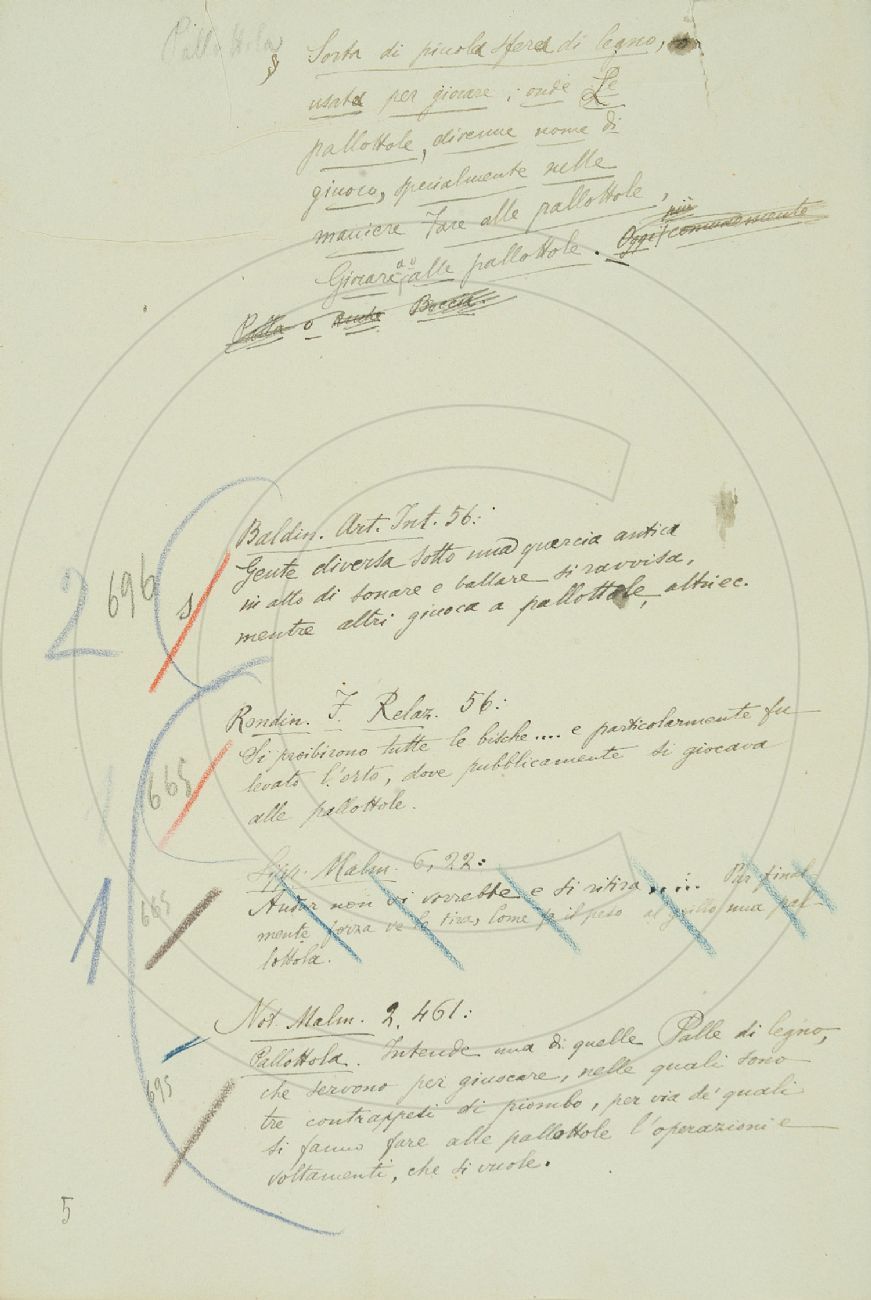 Pallottola
§ Sorta di piccola sfera di legno,
usata per giocare; onde Le
pallottole, divenne nome di
giuoco, specialmente nelle
maniere Fare alle pallottole,
Giocare alle pallottole. Oggi più comunemente
Palla o Boccia.
Baldin. Art. Int. 56:
Gente diversa sotto una quercia antica
in atto di sonare e ballare si ravvisa,
mentre altri giuoca a pallottole, altri ec.
2 696 s
Rondin. F. Relaz. 56:
Si proibirono tutte le bische.... e particolarmente fu
levato l'orto, dove pubblicamente si giocava
alle pallottole.
665
Lipp. Malm. 6, 22:
Andar non vi vorrebbe e si ritira ...... Pur final-
mente forza ve lo tira, Come il peso al grillo una pal-
lottola.
1 665
Not. Malm. 2. 461:
Pallottola. Intende una di quelle Palle di legno,
che servono per giuocare, nelle quali sono
tre contrappesi di piombo, per via de' quali
si fanno fare alle pallottole l'operazioni e
voltamenti, che si vuole.
695
5